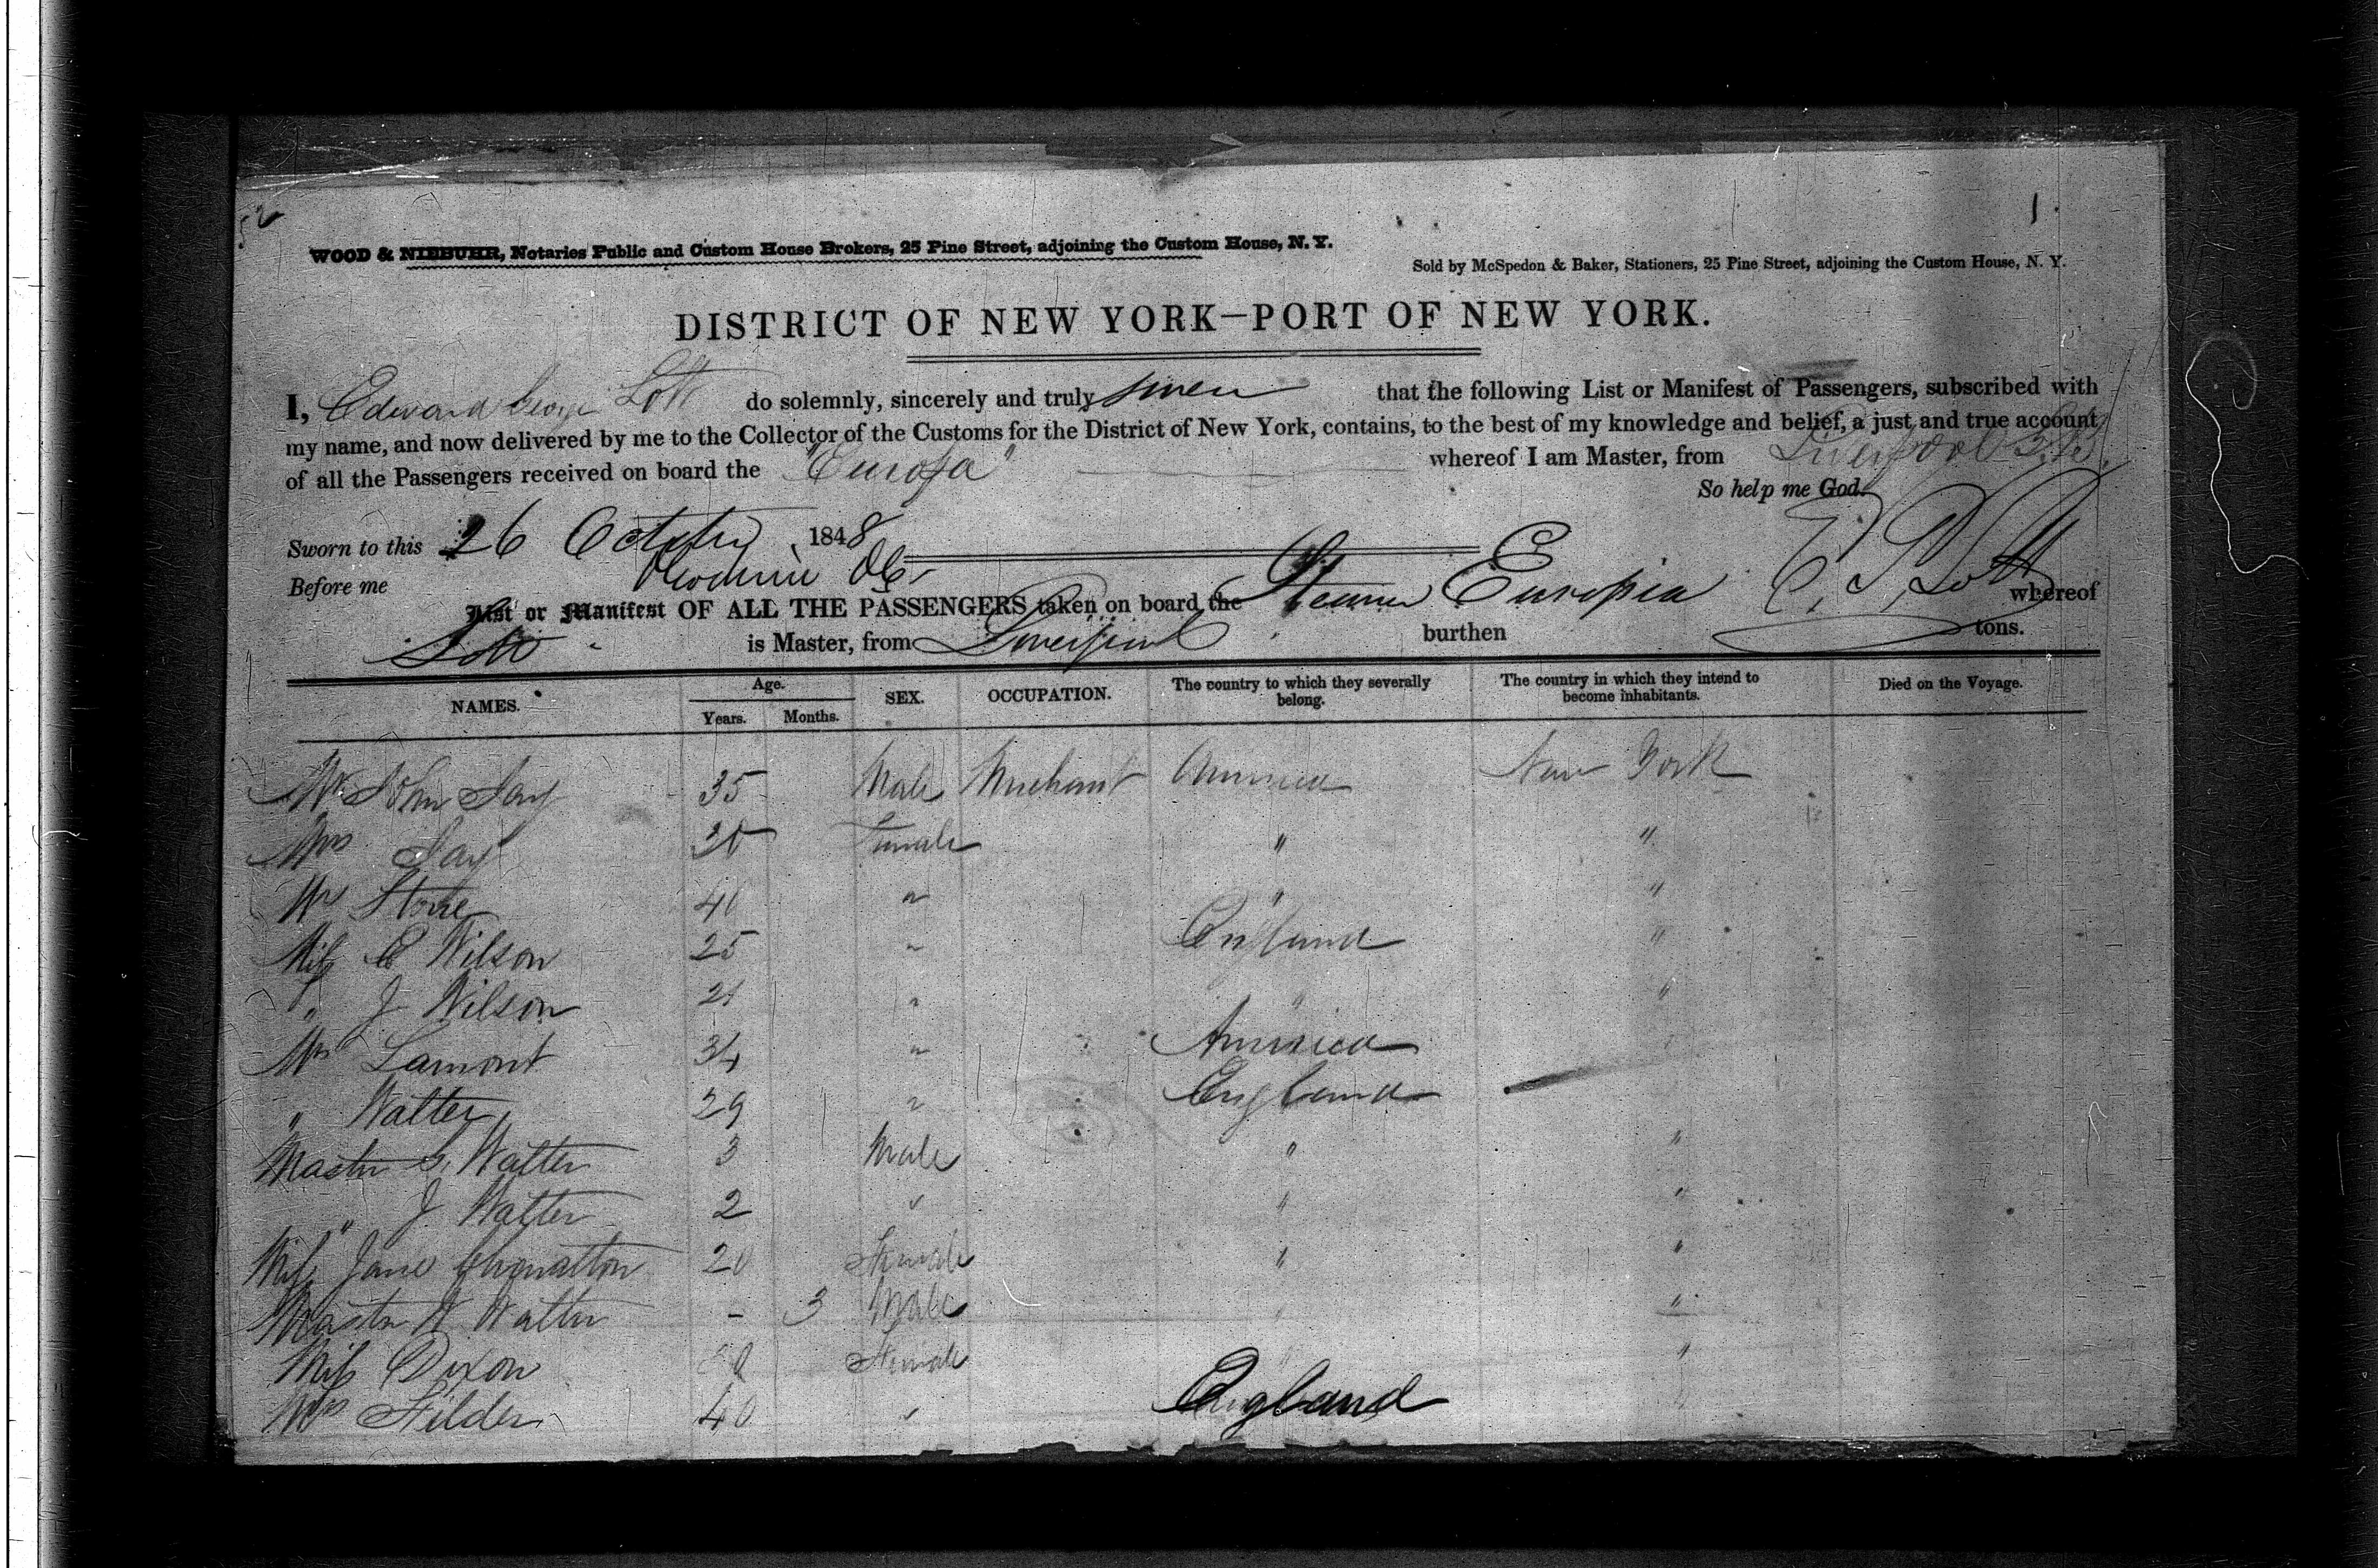 52
1
WOOD & NIEBUHR, Notaries Public and Custom House Brokers, 25 Pine Street, adjoining the Custom House, N. Y.
Sold by McSpedon & Baker, Stationers, 25 Pine Street, adjoining the Custom House, N. Y.
DISTRICT OF NEW YORK—PORT OF NEW YORK.
I, Edward George Lott do solemnly, sincerely and truly swear that the following List or Manifest of Passengers, subscribed with
my name, and now delivered by me to the Collector of the Customs for the District of New York, contains, to the best of my knowledge and belief, a just and true account
of all the Passengers received on board the "Europa" whereof I am Master, from Liverpool
So help me God.
Sworn to this 26 October 1848 E. G. Lott
Before me
List or Manifest OF ALL THE PASSENGERS taken on board the Steamer Europia whereof
Lott is Master, from Liverpool burthen tons.
NAMES. Age. Years. Months. SEX. OCCUPATION. The country to which they severally belong. The country in which they intend to become inhabitants. Died on the Voyage.
Mr John Jay 35 Male Merchant America New York
Mrs Jay Female " "
Stone 40 " " "
Miss C Wilson 25 " England "
" J Wilson 21 " " "
Mrs Lamont 34 " America
" Walter 29 " England
Master G. Walter 3 Male " "
" J Walter 2 " " "
Miss Jane 20 Female " "
Master W Walter - 3 Male " "
Miss Dixon Female "
Mrs Filder 40 " England "